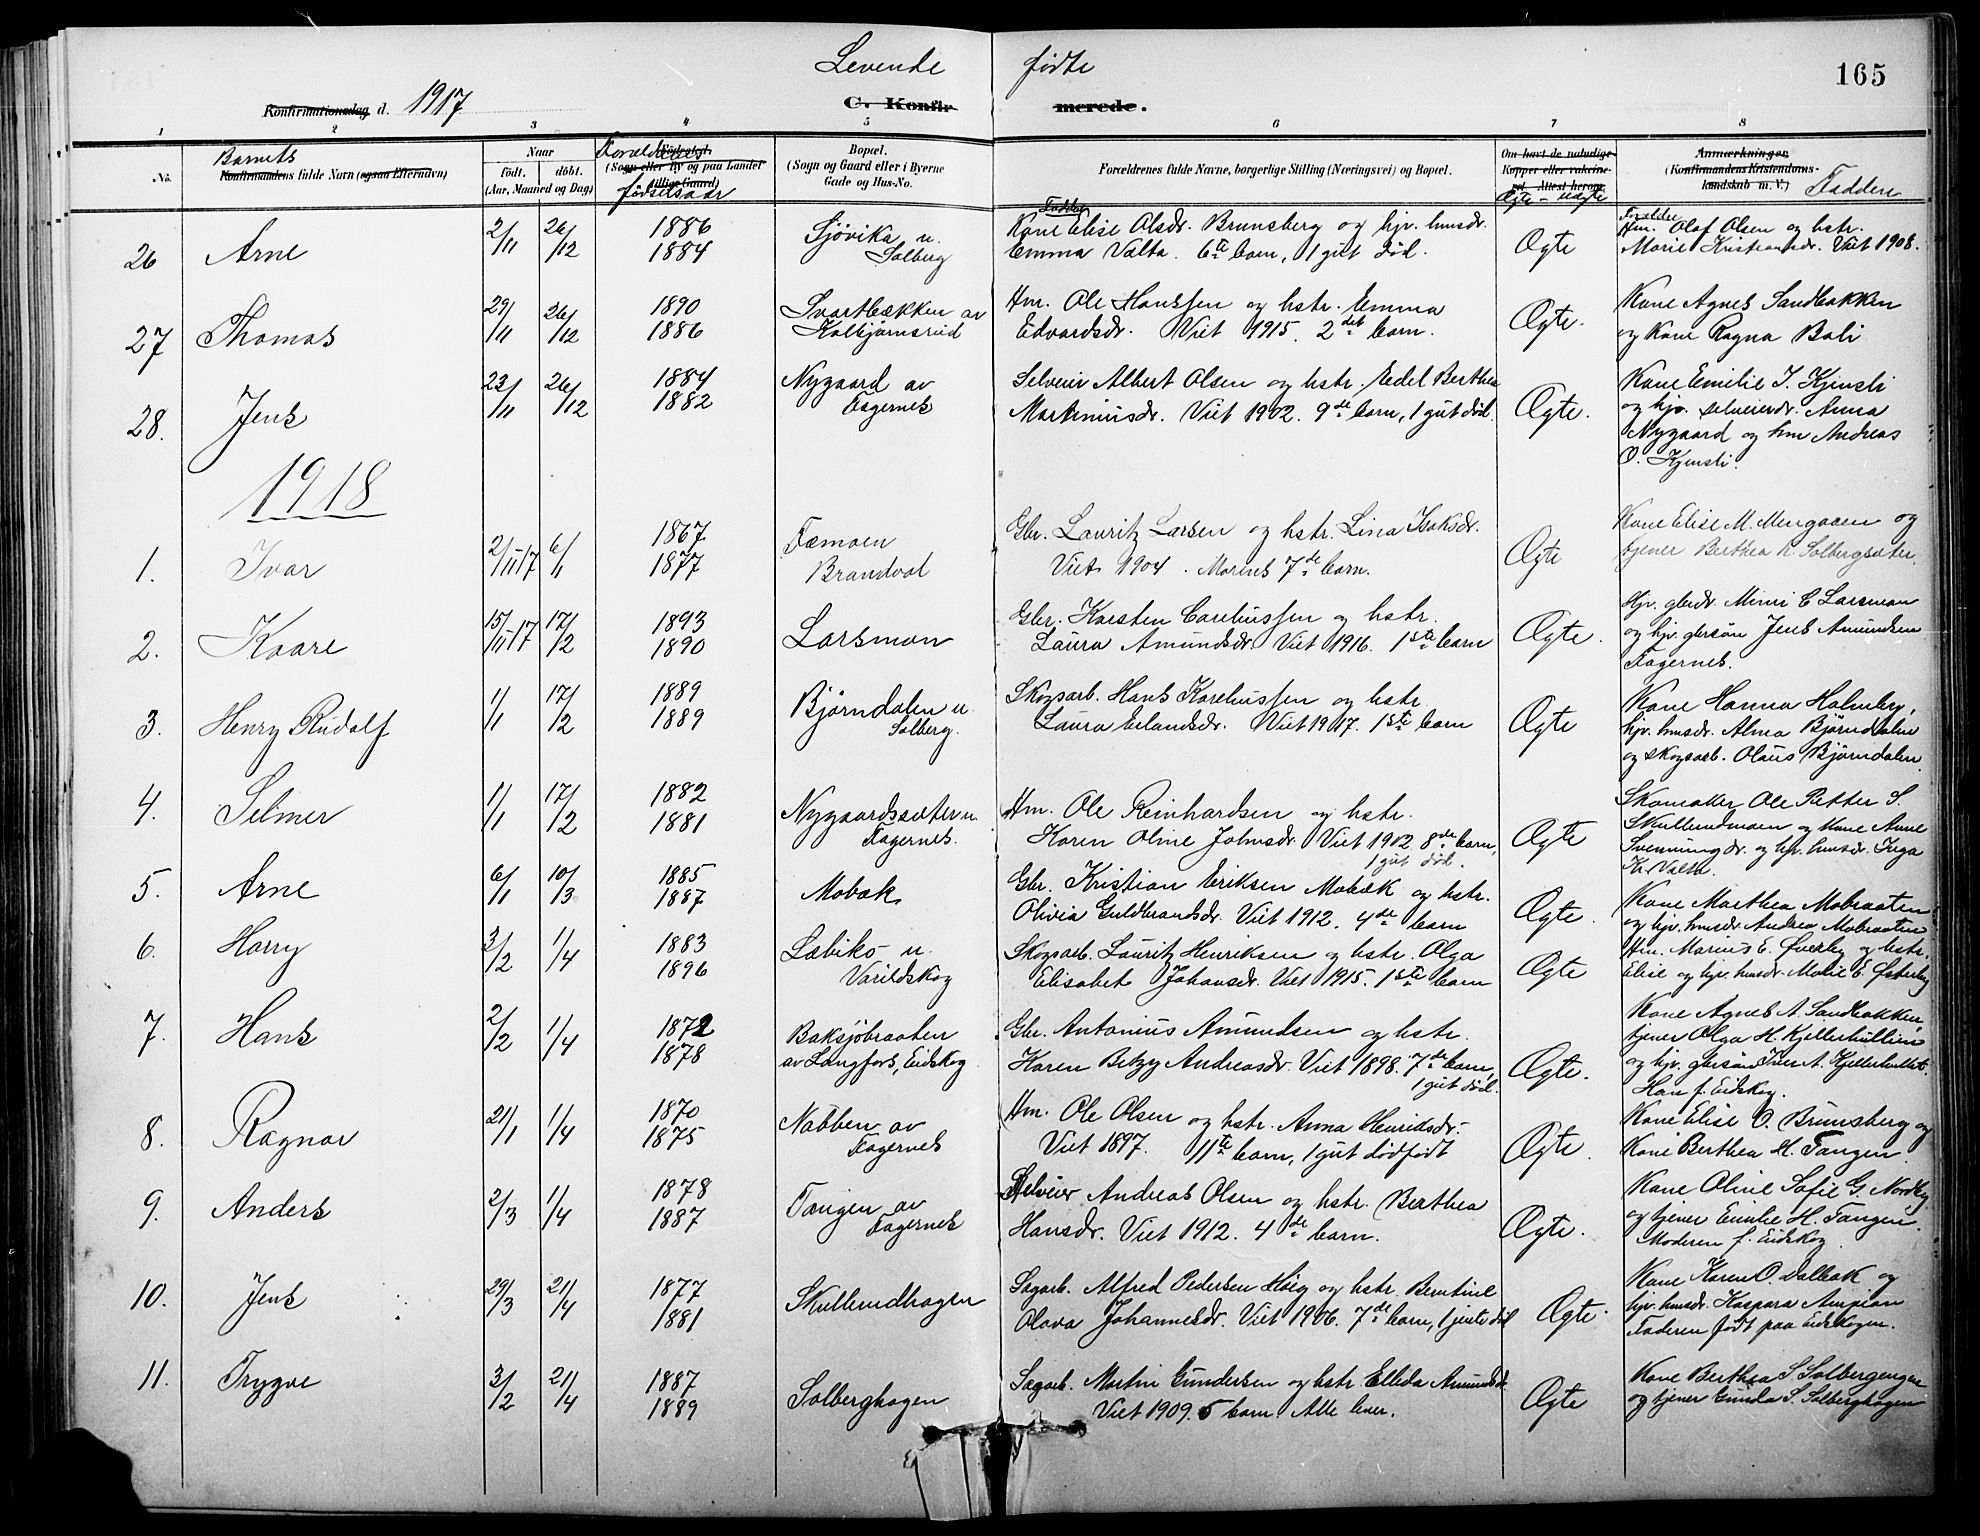 Levende fødte
165
Konfirmationsdag d. 1917
C. Konfirmerede.
1 2 3 4 5 6 7 8
No.
Barnets
Konfirmandens fulde Navn (ogsaa Efternavn)
Naar
født. døbt.
(Aar, Maaned og Dag)
Forældrenes
Fødested.
(Sogn eller By og paa Landet
tillige Gaard)
fødselsaar
Bopæl.
(Sogn og Gaard eller i Byerne
Gade og Hus-No.
Forældrenes fulde Navne, borgerlige Stilling (Næringsvei) og Bopæl.
Om havt de naturlige
Kopper eller vaccineret, Attest herom.
Ægte - uægte
Anmærkninger
(Konfirmandens Kristendomskundskab m. V.)
Faddere
26 Arne 2/11 26/12 1886 1884 Sjøvika u. Solberg
Fadder
Kone Elise Olsdr. Brunsberg og hjv. husdr.
Emma Valta. 6te barn, 1 gut død.
Ægte
Forældre
Hm. Olaf Olsen og hstr.
Marie Kristiansdr. Viet 1908.
27 Thomas 29/11 26/12 1890 1886 Svartbækken av Kolbjørnsrud
Hm. Ole Hanssen og hstr. Emma
Edvardsdr. Viet 1915. 2det barn.
Ægte.
Kone Agnes Sandbakken
og Kone Ragna Bali
28. Jens 23/11 26/12 1884 1882 Nygaard av Fagernes
Selveier Albert Olsen og hstr. Edel Berthea
Martiniusdr. Viet 1902. 9de barn, 1 gut død.
Ægte.
Kone Emilie J. Kjensli
og hjv. selveierdr. Anna
Nygaard og hm Andreas
O. Kjensli.
1918
1. Ivar 2/11 17 6/1 1867 1877 Tæmoen Brandval
Gbr. Lauritz Larsen og hstr. Lina Isaksdr.
Viet 1904. Morens 7de barn.
Ægte
Kone Elise M. Mengaaen og
tjener Berthea K. Solbergsæter.
2. Kaare 15/11 17 17/2 1893 1890 Larsmon
Gbr. Karsten Careliussen og hstr.
Laura Amundsdr. Viet 1916. 1ste barn
Ægte.
Hjv. gbrdr. Mimi C Larsmon
og hjv. gbrsøn Jens Amundsen
Fagernes.
3. Henry Rudolf 1/1 17/2 1889 1889 Bjørndalen u. Solberg.
Skogsarb. Hans Kareliussen og hstr.
Laura Erlandsdr. Viet 1917. 1ste barn
Ægte
Kone Hanna Holmby,
hjv. husdr. Alma Bjørndalen
og skogsarb. Olaus Bjørndalen.
4. Selmer 1/1 17/2 1882 1881 Nygaardssæter u. Fagernes.
Hm. Ole Reinhardsen og hstr.
Karen Oline Johnsdr. Viet 1902. 8de barn,
1 gut død.
Ægte
Skomaker Ole Petter S.
Skullerudmoen og Kone Anne
Svenningdr. og hjv. husdr. Inga
K. Valta.
5. Arne 6/1 10/3 1885 1887 Mobæk
Gbr. Kristian Eriksen Mobæk og hstr.
Olivia Guldbrandsdr. Viet 1912. 4de barn
Ægte.
Kone Marthea Mobraaten
og hjv. husdr. Andrea Mobraaten
6. Harry 3/2 1/4 1883 1896 Labiko u. Varildskog
Skogsarb. Lauritz Henriksen og hstr. Olga
Elisabet Johansdr. Viet 1915. 1ste barn
Ægte
Hm. Marius E. Øverby og hstr.
Elise og hjv. husdr. Malie E. Østerby
7. Hans 2/2 1/4 1872 1878 Baksjøbraaten av Langfors, Eidskog
Gbr. Antonius Amundsen og hstr.
Karen Betzy Andreasdr. Viet 1898. 7de barn,
1 gut død.
Ægte.
Kone Agnes A. Sandbakken
tjener Olga H. Kjellerhullien
og hjv. gbrsøn Iver A. Kjellerhullet.
Han f. Eidskog.
8. Ragnar 21/1 1/4 1870 1875 Nabben av Fagernes
Hm. Ole Olsen og hstr. Anna Henriksdr.
Viet 1897. 11te barn, 1 gut dødfødt
Ægte.
Kone Elise O. Brunsberg og
Kone Berthea H. Tangen.
9. Anders 2/3 1/4 1878 1887 Tangen av Fagernes
Selveier Andreas Olsen og hstr. Berthea
Hansdr. Viet 1912. 4de barn.
Ægte.
Kone Oline Sofie G. Nordby
og tjener Emilie H. Tangen.
Moderen f. Eidskog
10. Jens 29/3 21/4 1877 1881 Skullerudhagen
Sagarb. Alfred Pedersen Høig og hstr. Berntine
Olava Johannesdr. Viet 1906. 7de barn, 1 jente død
Ægte.
Kone Karen O. Dalbak og
hjv. husdr. Kaspara Ampian
Faderen født paa Eidskogen.
11. Trygve 3/2 21/4 1887 1889 Solberghagen
Sagarb. Martin Gundersen og hstr Ellida Amundsdr.
Viet 1909. 5 barn. Alle lever.
Ægte
Kone Berthea S Solbergengen
og tjener Gunda S. Solberghagen